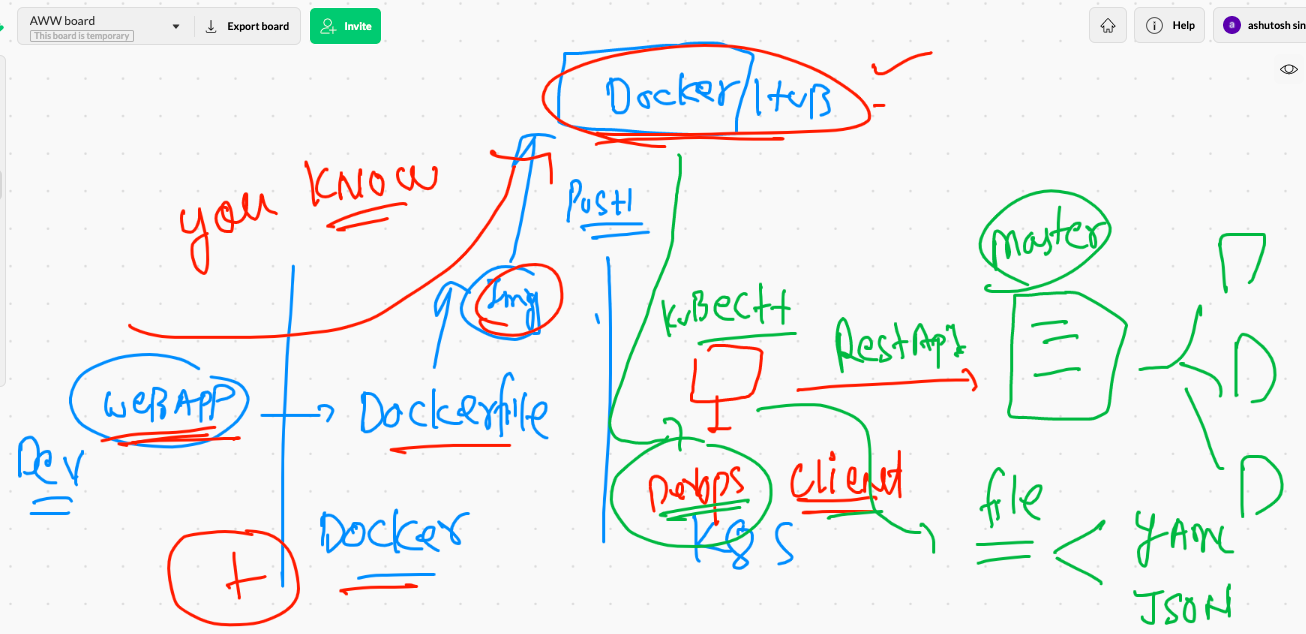 AWW board
This board is temporary
Export board
Invite
Help
a
ashutosh sin
Docker/HuB
you KNOW
PusH
Img
master
kuBectl
RestApi
weBAPP
Dockerfile
Dev
Devops
client
file
Docker
K8S
YAML
JSON